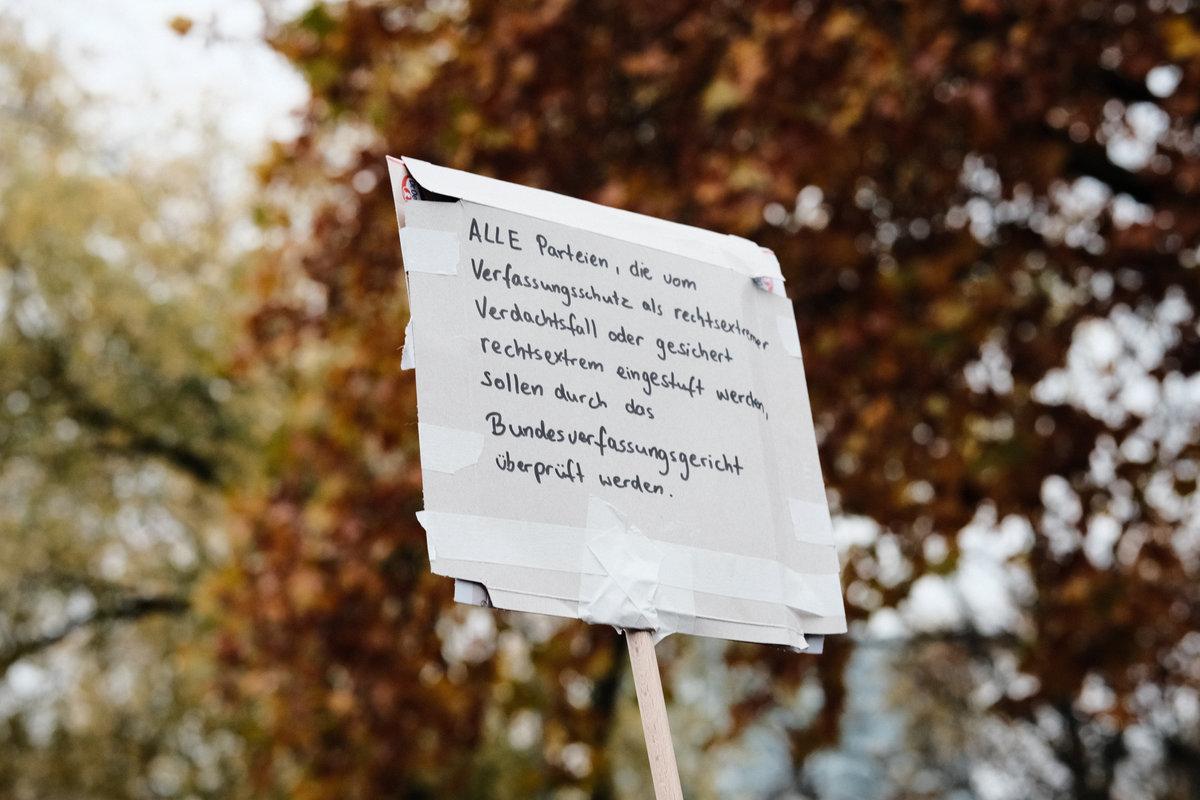 ALLE Parteien, die vom
Verfassungsschutz als rechtsextremer
Verdachtsfall oder gesichert
rechtsextrem eingestuft werden,
sollen durch das
Bundesverfassungsgericht
überprüft werden.